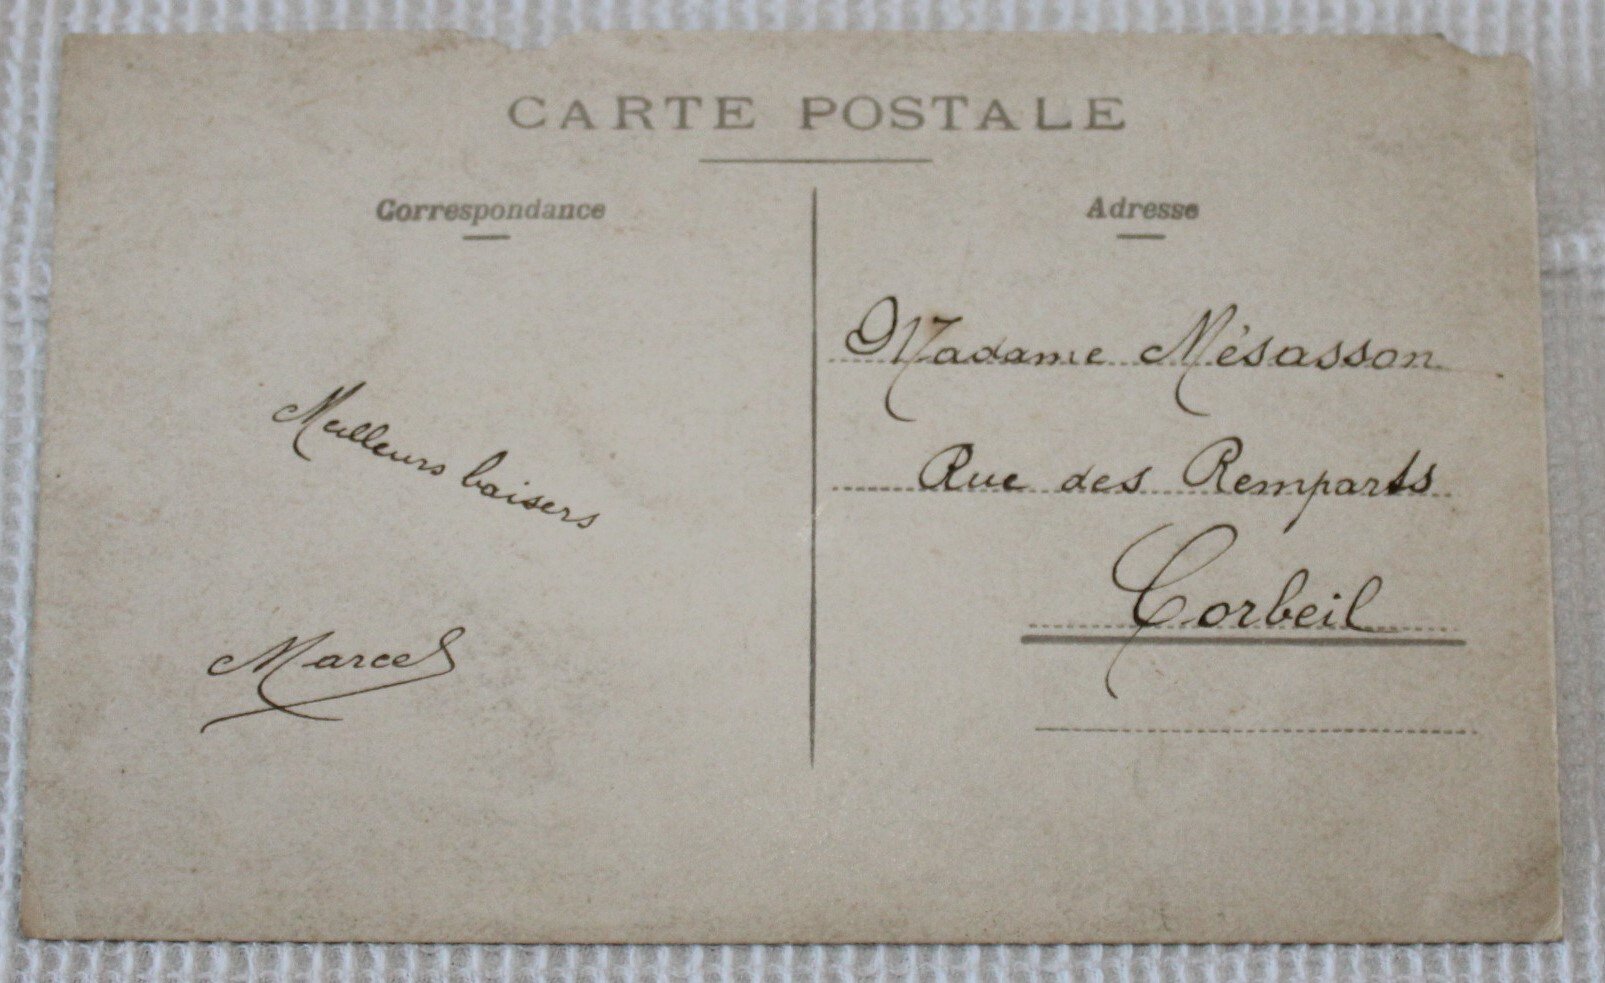 CARTE POSTALE
Correspondance
Meilleurs baisers
Marcel
Adresse
Madame Mésasson
Rue des Remparts
Corbeil